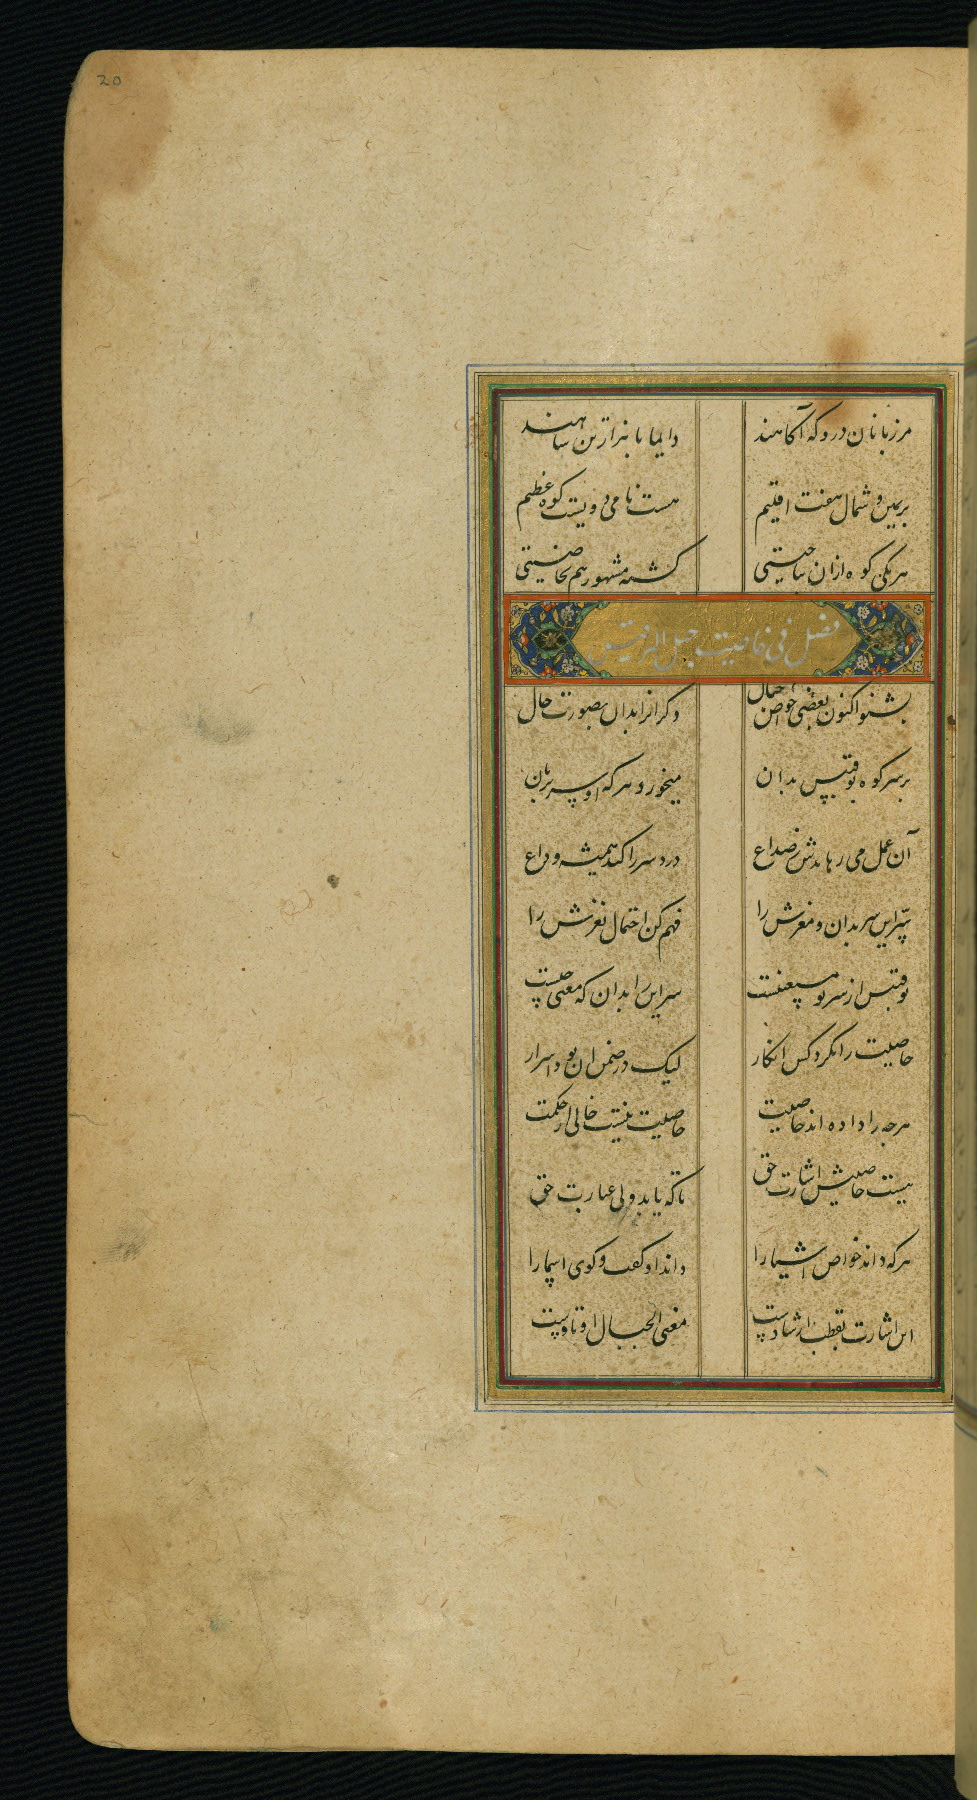 20
مرزبانان درو که آگاهند دایما
بریمین و شمال هفت اقلیم هست نامی دویست کوه عظیم
هر یکی کوه ازان بناحیتی گشته مشهور هم بخاصیتی
فصل فی خاصیت جبل
بشنو اکنون بعضی خواص جبال وکر انرا بدان بصورت حال
بر سر کوه توقیس بدان میخورد هر که او سپر بریان
آن عمل می رهاندش ز صداع درد سر را کند همیشه وداع
سر این سر بدان و مغزش را فهم کن احتمال نغزش را
توقیس از سر تو سر این را بدان که معنی چیست
خاصیت را نکرد کس انکار لیک در ضمن ان بود اسرار
هرچه را داده اند خاصیت خاصیت نیست خالی از حکمت
هست خاصیتش اشارت حق تا که یابد ولی عبارت حق
هر که داند خواص اشیا را داند او کفت و کوی اسما را
این اشارت بقطب ارشادست معنی الجبال اوتادست